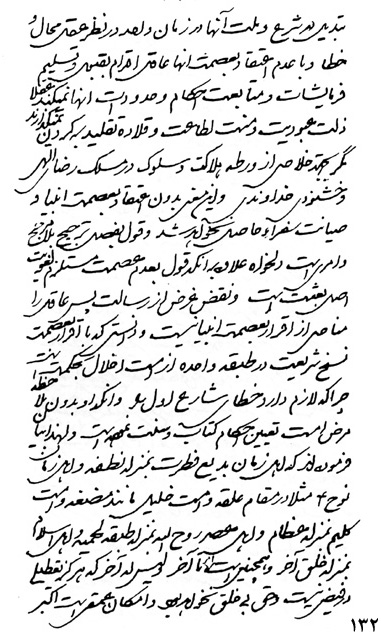 تبدیل در شرع و ملت آنها در زمان واحد در نظر عقل محال و
خطا و با عدم اعتقاد بعصمت آنها عاقلی اقدام بقبول و تسلیم
فرمایشات و متابعت احکام و حدودات آنها نمیکند عقلا
ذلت عبودیت و منت اطاعت و قلاده تقلید بر گردن نمیگذارند
مگر بجهة خلاصی از ورطه هلاکت و سلوک در مسلک رضای الهی
و خشنودی خداوندی و این معنی بدون اعتقاد بعصمت انبیاء و
صیانت سفراء حاصل نخواهد شد و قول بفصل ترجیح بلا مرجح
و امری است دلخواه علاوه بر آنکه قول بعدم عصمت مستلزم تفویت
اصل بعثت است و نقض غرض از رسالت پس عاقل را
مناصی از اقرار بعصمت انبیا نیست و دانستی که با اقرار بعصمت
نسخ شریعت در طبقه واحده از امت اخلال بحکمت است
چرا که لازم دارد خطای شارع اول و آنکه او بدون ملاحظه
مرض امت تعیین احکام کتاب و سنت نموده است و لهذا انبیا
فرمودند که اهل زمان بدیع فطرت بمنزله نطفه و اهل زمان
نوح ع مثلا در مقام علقه و امت خلیل مانند مضغه و امت
کلیم بمنزله عظام و اهل عصر روح الله بمنزله طبقه لحمیه و اهل اسلام
بمنزله خلق آخر و همچنین است تا آخر
در فیض نیست و حق بی خلق نخواهد بود و امکان عمیق است اکبر
۱۳۲